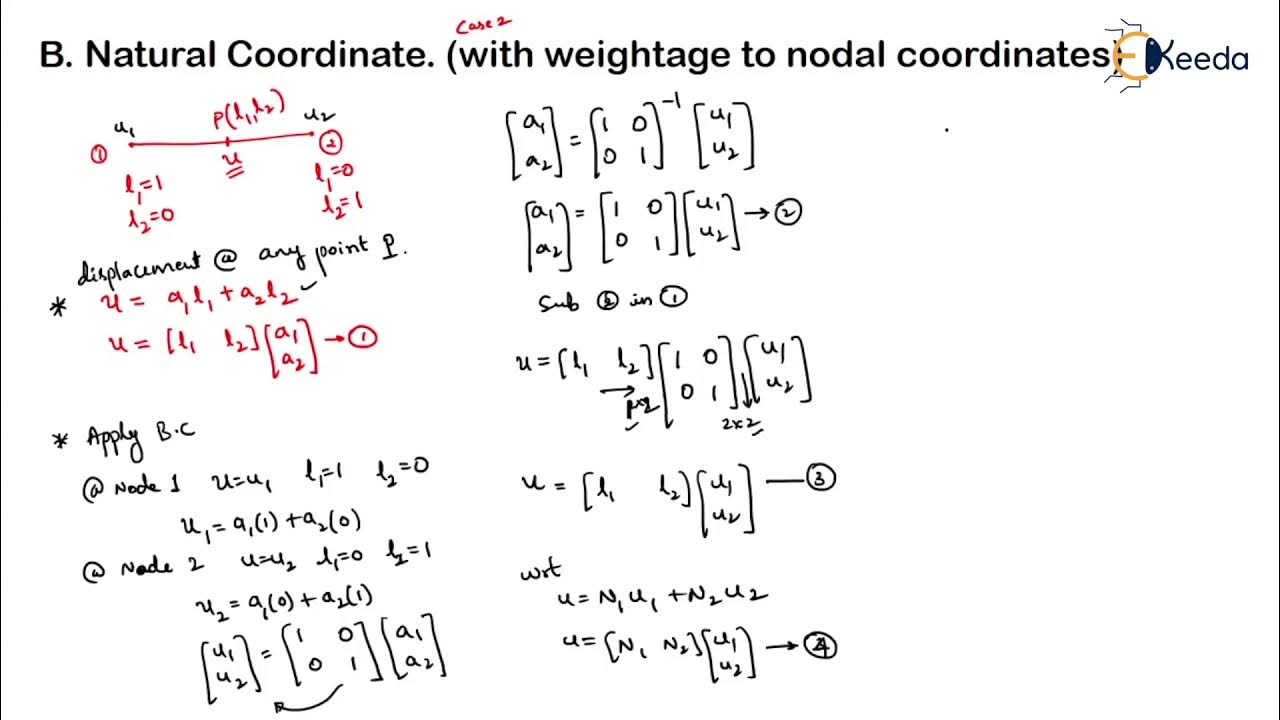 Case 2
B. Natural Coordinate. (with weightage to nodal coordinates)
EKeeda
u₁ P(l₁,l₂) u₂
① u ②
l₁=1 l₁=0
l₂=0 l₂=1
displacement @ any point P.
* u = a₁l₁ + a₂l₂ ✓
u = [l₁ l₂] [a₁ a₂] → ①
* Apply B.C
@ Node 1 u=u₁ l₁=1 l₂=0
u₁ = a₁(1) + a₂(0)
@ Node 2 u=u₂ l₁=0 l₂=1
u₂ = a₁(0) + a₂(1)
[u₁ u₂] = [1 0 0 1] [a₁ a₂]
[a₁ a₂] = [1 0 0 1]⁻¹ [u₁ u₂]
[a₁ a₂] = [1 0 0 1] [u₁ u₂] → ②
Sub ② in ①
u = [l₁ l₂] [1 0 0 1] [u₁ u₂]
1×2 2×2
u = [l₁ l₂] [u₁ u₂] — ③
wrt
u = N₁u₁ + N₂u₂
u = [N₁ N₂] [u₁ u₂] → ④